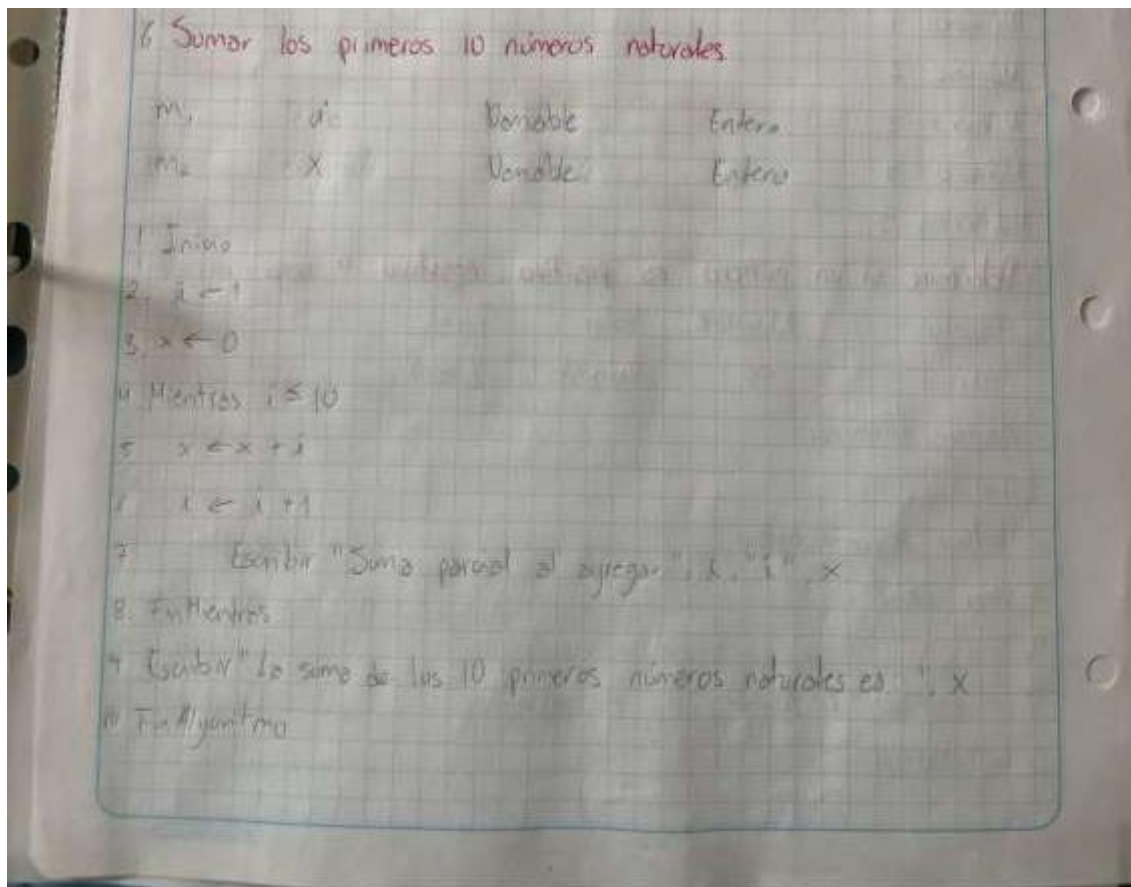 6 Sumar los primeros 10 números naturales.
m₁ i Variable Entero
m₂ x Variable Entero
1 Inicio
2. i ← 1
3. x ← 0
4 Mientras i ≤ 10
5 x ← x + i
i ← i + 1
7 Escribir "Suma parcial al agregar", i, "i", x
8. FinMientras
9 Escribir "La suma de los 10 primeros números naturales es ", x
10 FinAlgoritmo